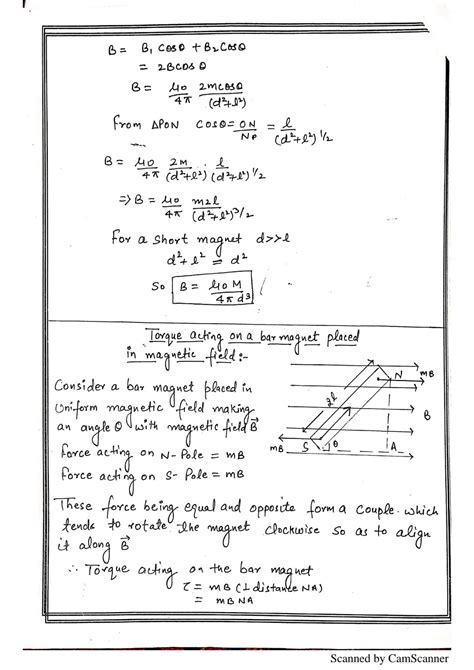 B = B₁ cosθ + B₂ cosθ
= 2Bcosθ
B = μ0/4π 2mcosθ/(d²+l²)
from ΔPON cosθ = ON/NP = l/(d²+l²)^1/2
B = μ0/4π 2m/(d²+l²) · l/(d²+l²)^1/2
⇒ B = μ0/4π m2l/(d²+l²)^3/2
For a short magnet d>>l
d²+l² = d²
So B = μ0 M/4π d³
Torque acting on a bar magnet placed
in magnetic field :-
Consider a bar magnet placed in
Uniform magnetic field making
an angle θ with magnetic field B⃗
force acting on N-Pole = mB
force acting on S-Pole = mB
N mB
2l
B
mB S θ A
These force being equal and opposite form a couple. which
tends to rotate the magnet clockwise so as to align
it along B⃗
∴ Torque acting on the bar magnet
τ = mB (⊥ distance NA)
= mB NA
Scanned by CamScanner